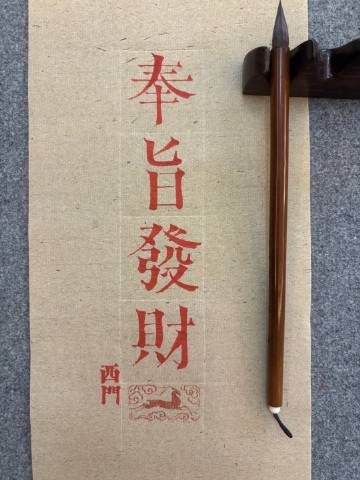 奉旨發財
西門